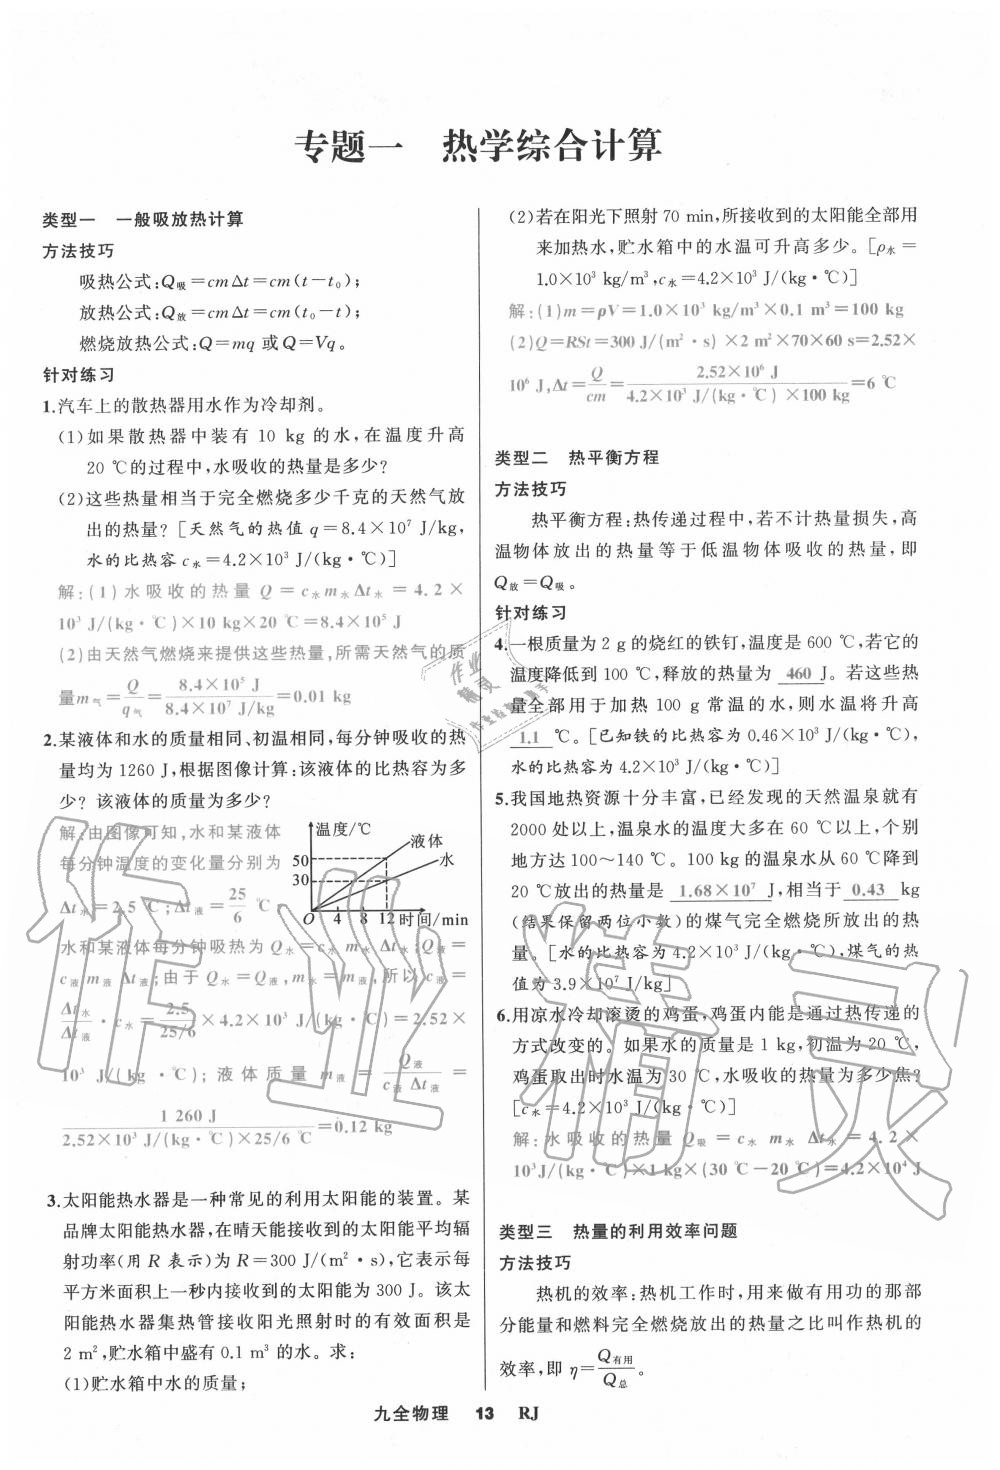 专题一 热学综合计算
类型一 一般吸放热计算
方法技巧
吸热公式:Q吸=cmΔt=cm(t-t₀);
放热公式:Q放=cmΔt=cm(t₀-t);
燃烧放热公式:Q=mq 或Q=Vq。
针对练习
1.汽车上的散热器用水作为冷却剂。
(1)如果散热器中装有 10 kg 的水,在温度升高
20 ℃的过程中,水吸收的热量是多少?
(2)这些热量相当于完全燃烧多少千克的天然气放
出的热量?[天然气的热值 q=8.4×10⁷ J/kg,
水的比热容 c水=4.2×10³ J/(kg·℃)]
解:(1)水吸收的热量 Q=c水m水Δt水=4.2×
10³ J/(kg·℃)×10 kg×20 ℃=8.4×10⁵ J
(2)由天然气燃烧来提供这些热量,所需天然气的质
量m气=Q/q气=8.4×10⁵ J/8.4×10⁷ J/kg=0.01 kg
2.某液体和水的质量相同、初温相同,每分钟吸收的热
量均为1260 J,根据图像计算:该液体的比热容为多
少? 该液体的质量为多少?
解:由图像可知,水和某液体
每分钟温度的变化量分别为
Δt水=2.5 ℃;Δt液=25/6 ℃,
温度/℃
液体
水
50
30
O 4 8 12 时间/min
水和某液体每分钟吸热为Q水=c水m水Δt水;Q液=
c液m液Δt液;由于Q水=Q液,m水=m液,所以c液=
Δt水/Δt液·c水=2.5/25/6×4.2×10³ J/(kg·℃)=2.52×
10³ J/(kg·℃);液体质量 m液=Q液/c液Δt液=
1 260 J/2.52×10³ J/(kg·℃)×25/6 ℃=0.12 kg
3.太阳能热水器是一种常见的利用太阳能的装置。某
品牌太阳能热水器,在晴天能接收到的太阳能平均辐
射功率(用R表示)为R=300 J/(m²·s),它表示每
平方米面积上一秒内接收到的太阳能为 300 J。该太
阳能热水器集热管接收阳光照射时的有效面积是
2 m²,贮水箱中盛有0.1 m³的水。求:
(1)贮水箱中水的质量;
(2)若在阳光下照射70 min,所接收到的太阳能全部用
来加热水,贮水箱中的水温可升高多少。[ρ水=
1.0×10³ kg/m³,c水=4.2×10³ J/(kg·℃)]
解:(1)m=ρV=1.0×10³ kg/m³×0.1 m³=100 kg
(2)Q=RSt=300 J/(m²·s)×2 m²×70×60 s=2.52×
10⁶ J,Δt=Q/cm=2.52×10⁶ J/4.2×10³ J/(kg·℃)×100 kg=6 ℃
类型二 热平衡方程
方法技巧
热平衡方程:热传递过程中,若不计热量损失,高
温物体放出的热量等于低温物体吸收的热量,即
Q放=Q吸。
针对练习
4.一根质量为2 g的烧红的铁钉,温度是600 ℃,若它的
温度降低到100 ℃,释放的热量为 460 J。若这些热
量全部用于加热 100 g 常温的水,则水温将升高
1.1 ℃。[已知铁的比热容为0.46×10³ J/(kg·℃),
水的比热容为4.2×10³ J/(kg·℃)]
5.我国地热资源十分丰富,已经发现的天然温泉就有
2000处以上,温泉水的温度大多在60 ℃以上,个别
地方达100~140 ℃。100 kg的温泉水从60 ℃降到
20 ℃放出的热量是 1.68×10⁷ J,相当于 0.43 kg
(结果保留两位小数)的煤气完全燃烧所放出的热
量。[水的比热容为4.2×10³ J/(kg·℃),煤气的热
值为3.9×10⁷ J/kg]
6.用凉水冷却滚烫的鸡蛋,鸡蛋内能是通过热传递的
方式改变的。如果水的质量是1 kg,初温为20 ℃,
鸡蛋取出时水温为30 ℃,水吸收的热量为多少焦?
[c水=4.2×10³ J/(kg·℃)]
解:水吸收的热量 Q吸=c水 m水 Δt水=4.2×
10³J/(kg·℃)×1 kg×(30 ℃-20 ℃)=4.2×10⁴ J
类型三 热量的利用效率问题
方法技巧
热机的效率:热机工作时,用来做有用功的那部
分能量和燃料完全燃烧放出的热量之比叫作热机的
效率,即 η=Q有用/Q总。
九全物理 13 RJ
作业精灵